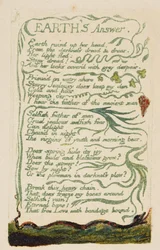 EARTH'S Answer.
Earth rais'd up her head,
From the darkness dread & drear.
Her light fled:
Stony dread!
And her locks cover'd with grey despair.
Prison'd on watry shore
Starry Jealousy does keep my den
Cold and hoar
Weeping o'er
I hear the father of the ancient men
Selfish father of men
Cruel jealous selfish fear
Can delight
Chain'd in night
The virgins of youth and morning bear.
Does spring hide its joy
When buds and blossoms grow?
Does the sower?
Sow by night?
Or the plowman in darkness plow?
Break this heavy chain,
That does freeze my bones around
Selfish! vain!
Eternal bane!
That free Love with bondage bound.